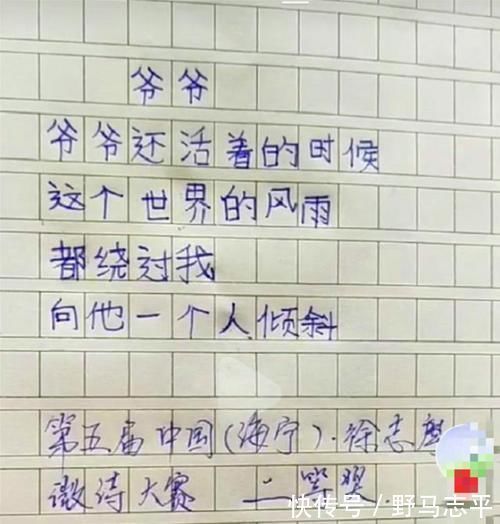 爷爷
爷爷还活着的时候
这个世界的风雨
都绕过我
向他一个人倾斜
第五届中国(海宁)·徐志摩
微诗大赛 二等奖
快传号/野马志平